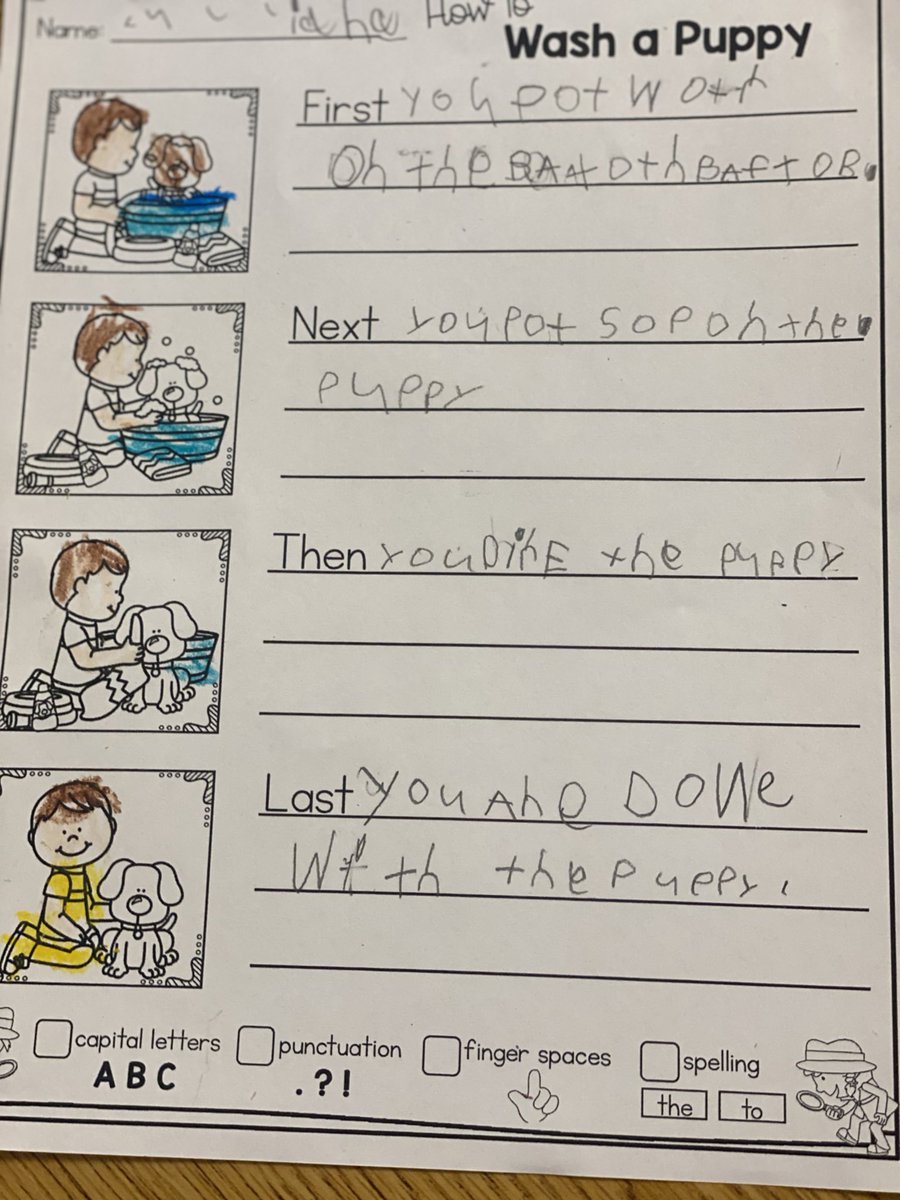 Name: How to
Wash a Puppy
First you pot Woth
Oh the BAAt Oth BAFtOR.
Next you pot sop oh the
puppy
Then you DihE the puppy
Last you Ahe DoWe
With the puppy.
capital letters punctuation finger spaces spelling
A B C . ? ! the to